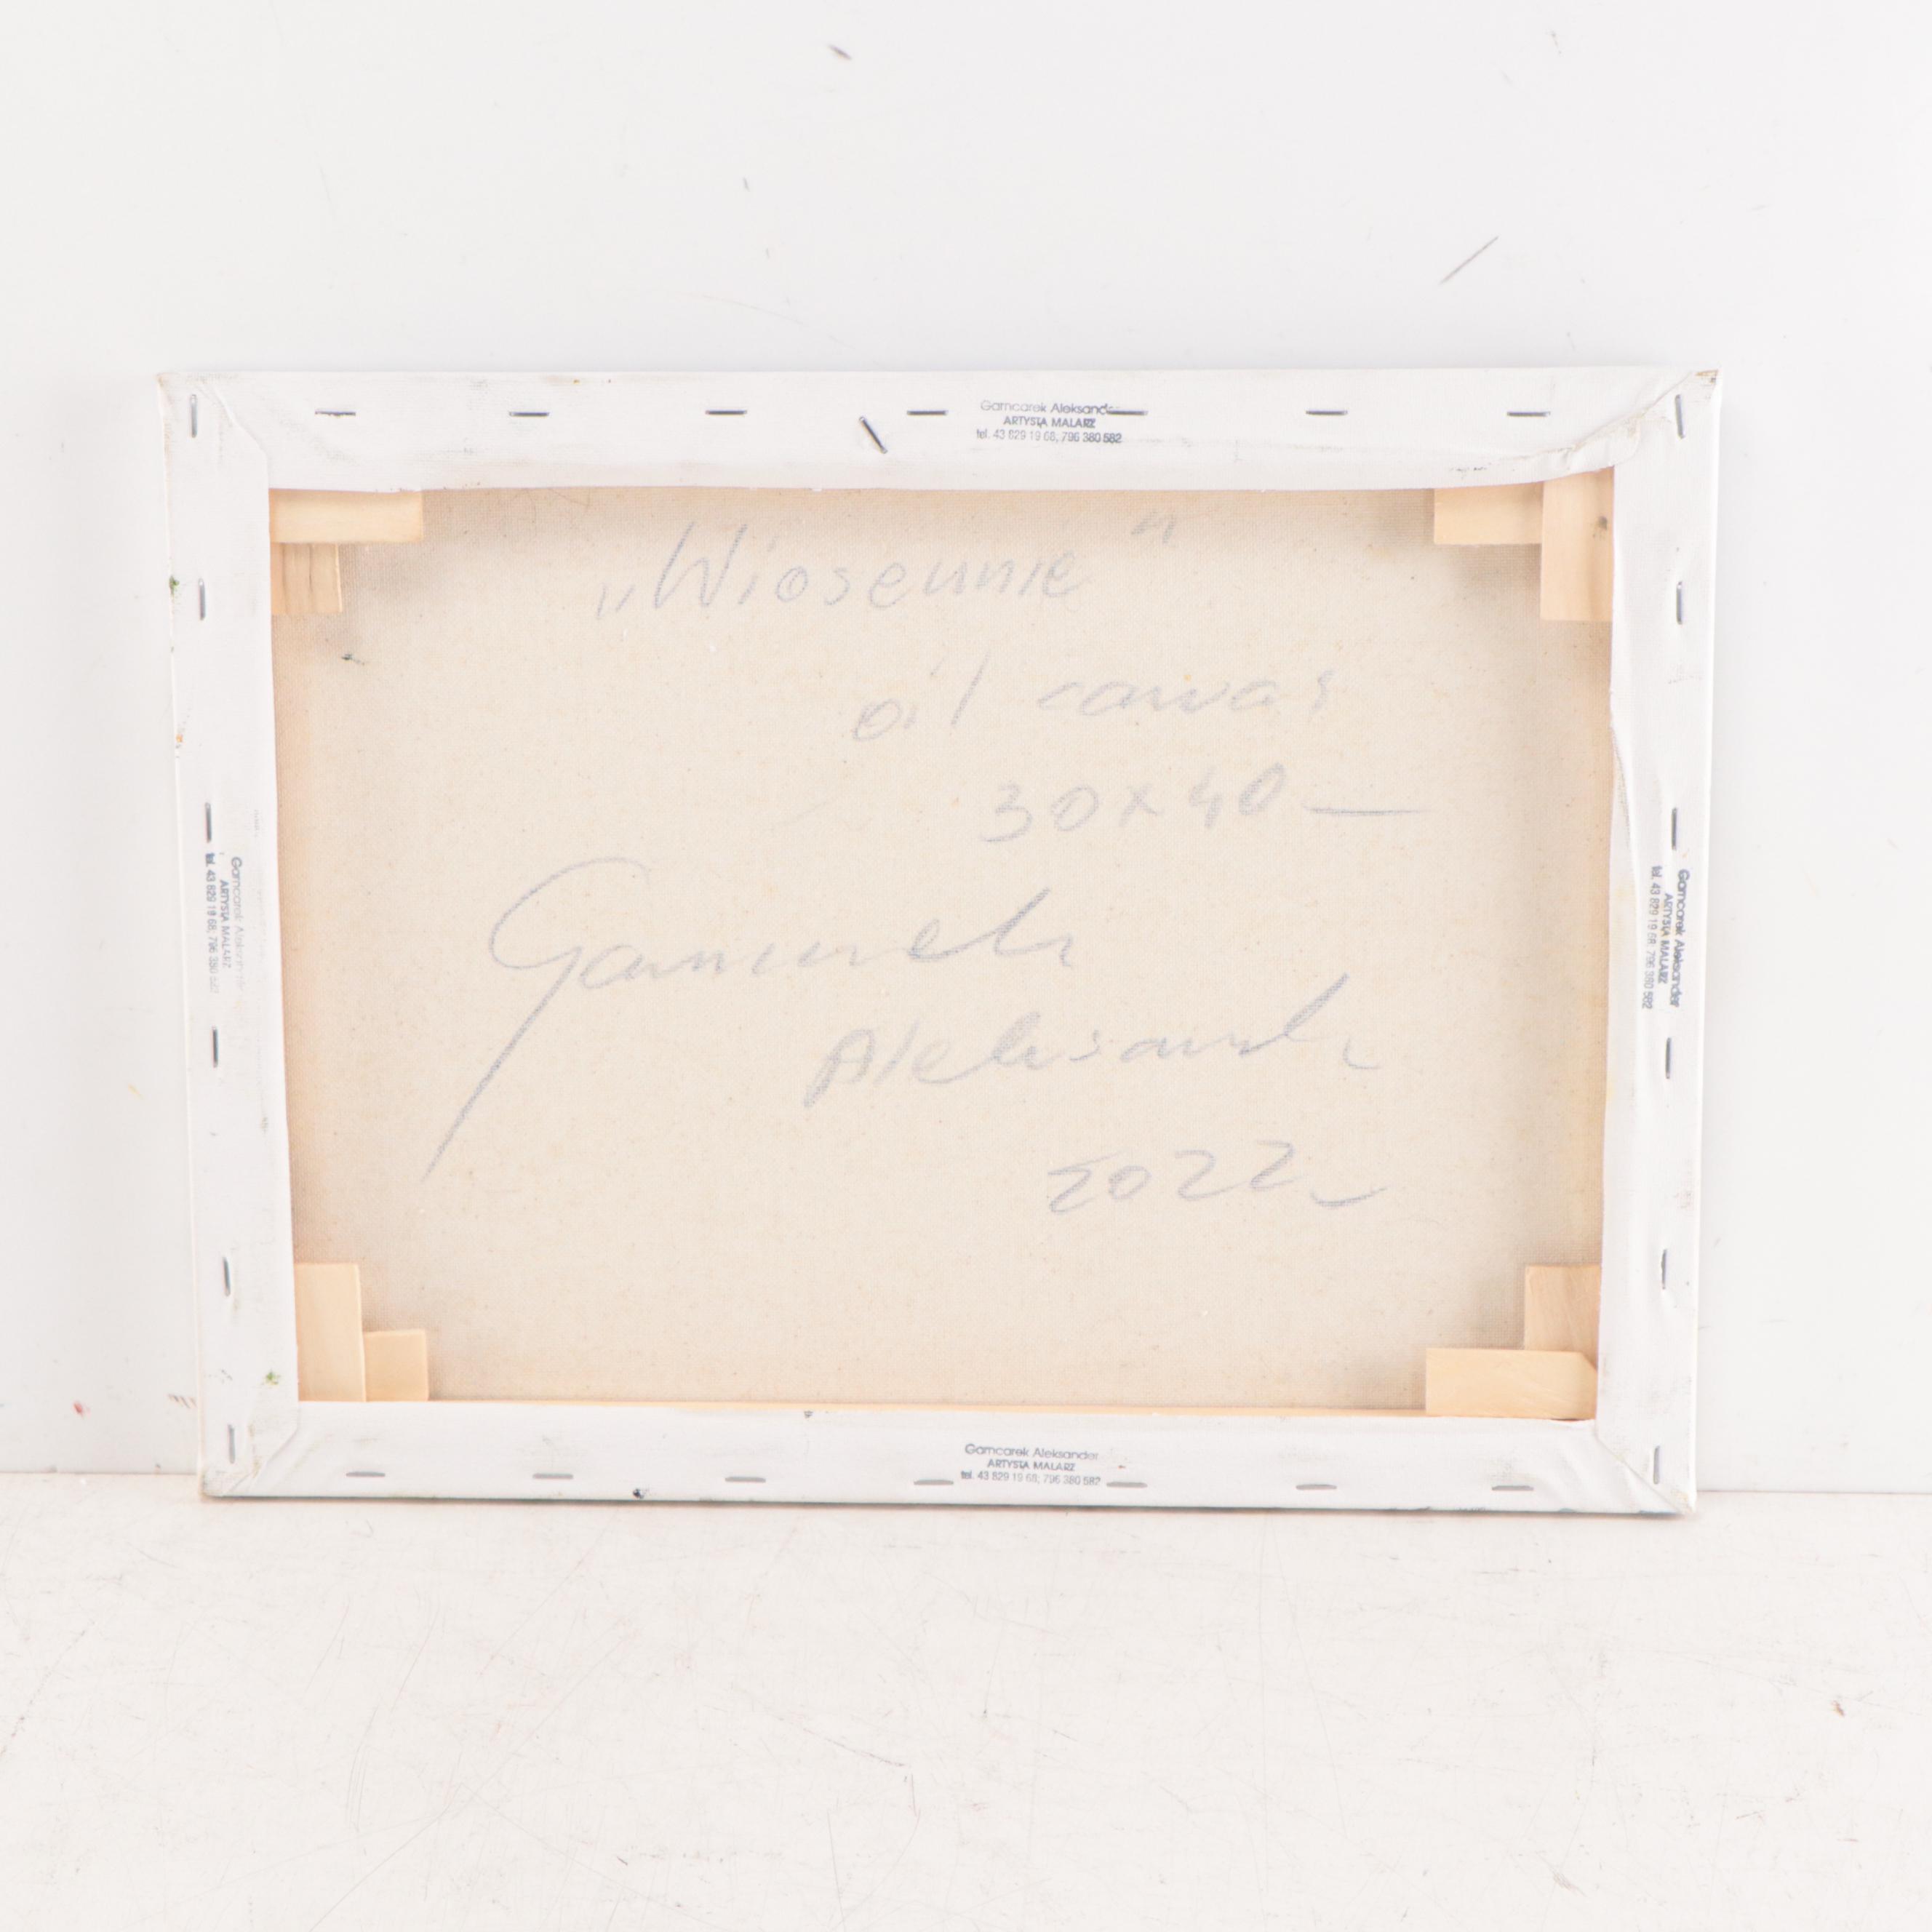 Garncarek Aleksander
ARTYSTA MALARZ
tel. 43 829 19 68; 796 380 582
„Wiosennie"
oil canvas
30x40
Garncarek
Aleksander
2022
Garncarek Aleksander
ARTYSTA MALARZ
tel. 43 829 19 68; 796 380 582
Garncarek Aleksander
ARTYSTA MALARZ
tel. 43 829 19 68; 796 380 582
Garncarek Aleksander
ARTYSTA MALARZ
tel. 43 829 19 68; 796 380 582